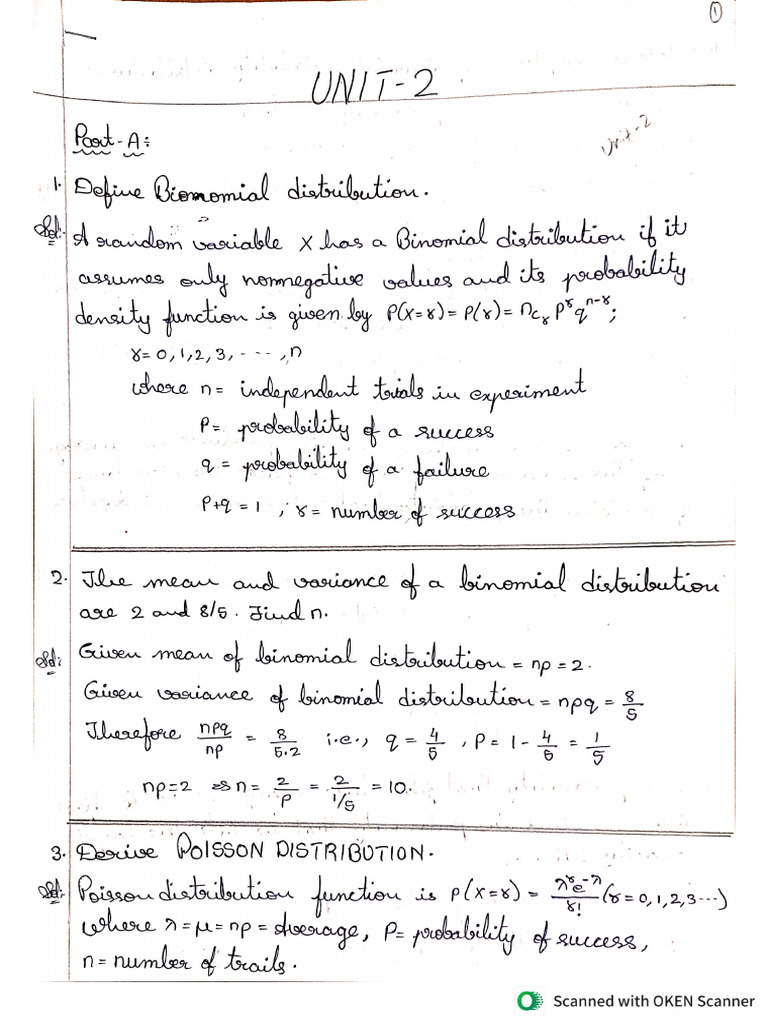 1
UNIT-2
Unit-2
Part-A:
1. Define Bionomial distribution.
Sol: A random variable X has a Binomial distribution if it
assumes only nonnegative values and its probability
density function is given by P(X=r) = P(r) = nCr p^r q^(n-r);
r=0,1,2,3,----,n
where n = independent trials in experiment
P= probability of a success
q = probability of a failure
P+q = 1 ; r = number of success
2. The mean and variance of a binomial distribution
are 2 and 8/5. Find n.
Sol: Given mean of binomial distribution = np = 2.
Given variance of binomial distribution = npq = 8/5
Therefore npq/np = 8/5.2 i.e., q = 4/5 , P = 1 - 4/5 = 1/5
np=2 ⇒ n = 2/P = 2/1/5 = 10.
3. Derive POISSON DISTRIBUTION.
Sol: Poisson distribution function is P(X=r) = λ^r e^-λ/r! (r=0,1,2,3...)
where λ=μ=np = Average, P= probability of success,
n = number of trails.
Scanned with OKEN Scanner